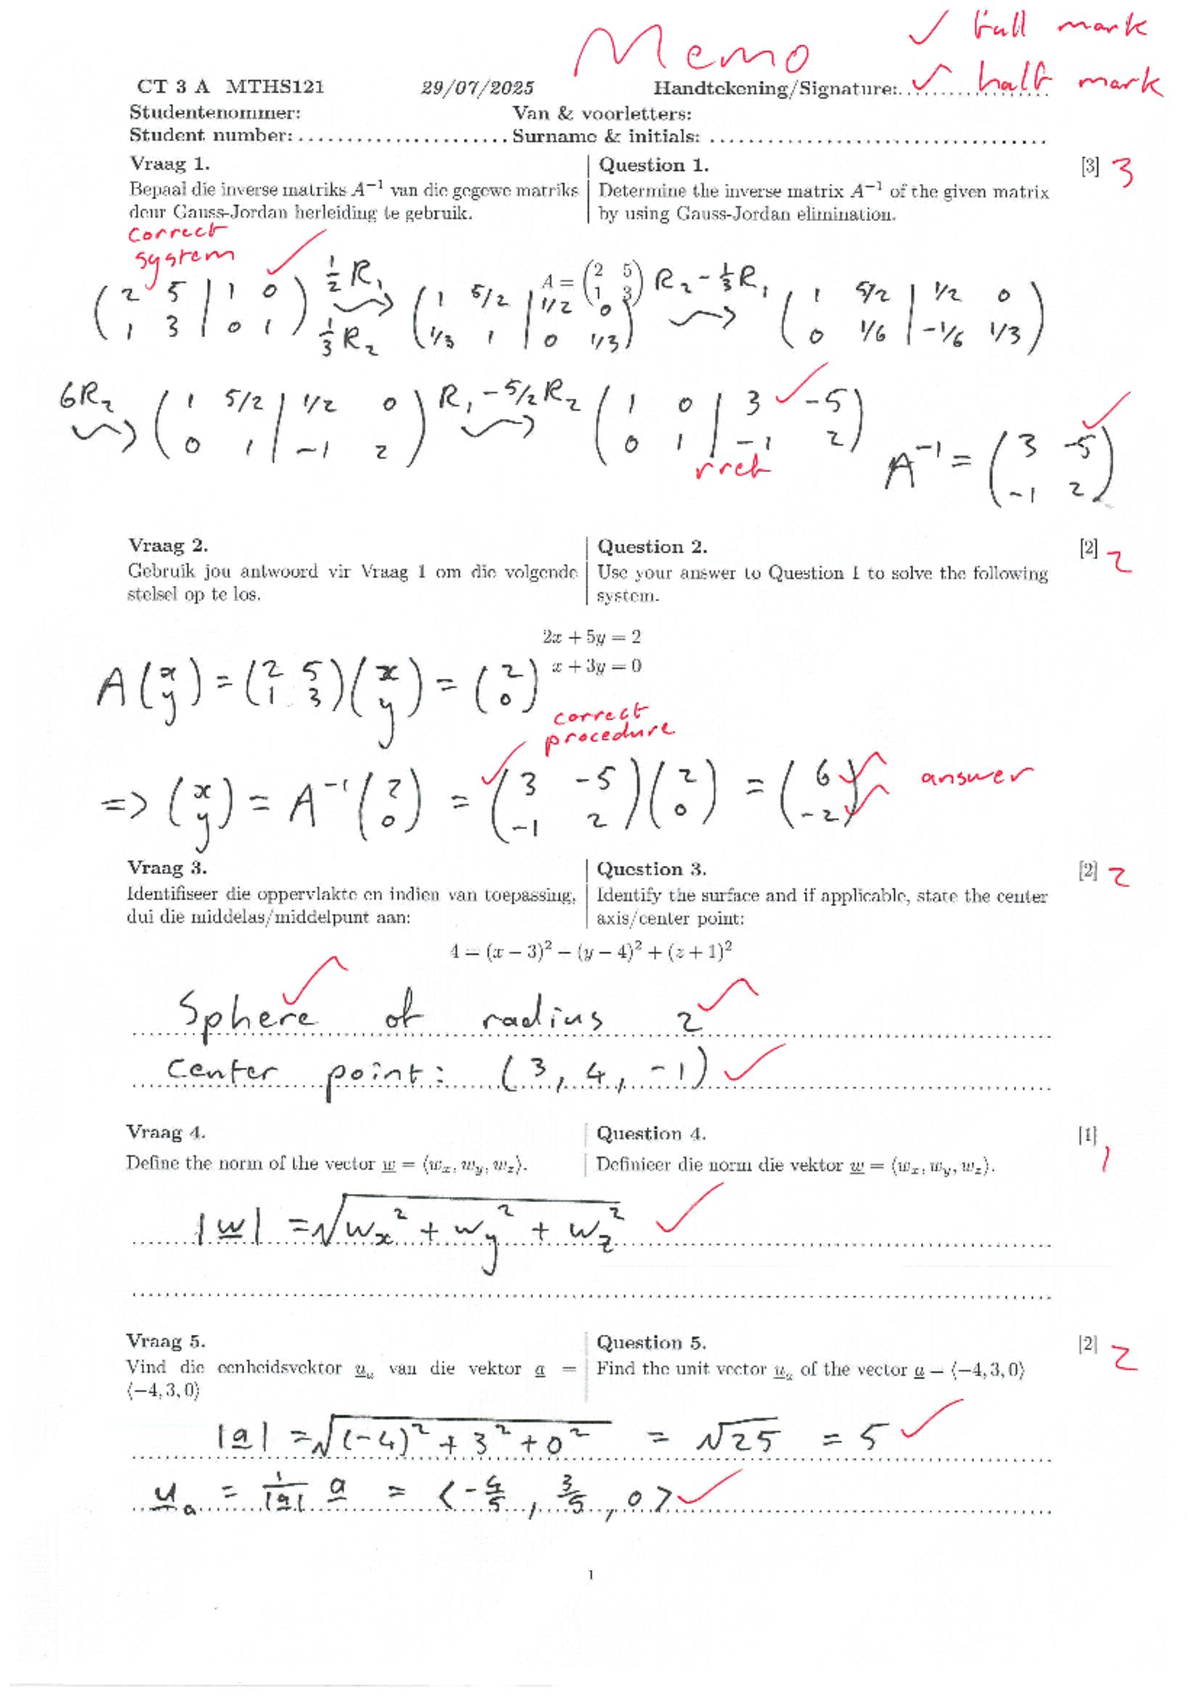 Memo
✓ full mark
✓ half mark
CT 3 A MTHS121 29/07/2025 Handtekening/Signature:..............
Studentenommer: Van & voorletters:
Student number: ..................... Surname & initials: ..................................
Vraag 1.
Bepaal die inverse matriks A⁻¹ van die gegewe matriks
deur Gauss-Jordan herleiding te gebruik.
Question 1. [3] 3
Determine the inverse matrix A⁻¹ of the given matrix
by using Gauss-Jordan elimination.
A = (2 5; 1 3)
correct
system
(2 5 | 1 0; 1 3 | 0 1) ✓ ½R₁ ⅓R₂ ⇝ (1 5/2 | 1/2 0; 1/3 1 | 0 1/3) R₂ - ⅓R₁ ⇝ (1 5/2 | 1/2 0; 0 1/6 | -1/6 1/3)
6R₂ ⇝ (1 5/2 | 1/2 0; 0 1 | -1 2) R₁ - 5/2 R₂ ⇝ (1 0 | 3 -5; 0 1 | -1 2) ✓
rref
A⁻¹ = (3 -5; -1 2) ✓
Vraag 2.
Gebruik jou antwoord vir Vraag 1 om die volgende
stelsel op te los.
Question 2. [2] 2
Use your answer to Question 1 to solve the following
system.
2x + 5y = 2
x + 3y = 0
A(x; y) = (2 5; 1 3)(x; y) = (2; 0)
correct
procedure
=> (x; y) = A⁻¹(2; 0) = ✓ (3 -5; -1 2)(2; 0) = (6; -2) answer
Vraag 3.
Identifiseer die oppervlakte en indien van toepassing,
dui die middelas/middelpunt aan:
Question 3. [2] 2
Identify the surface and if applicable, state the center
axis/center point:
4 = (x − 3)² − (y − 4)² + (z + 1)²
Sphere of radius 2
Center point: (3, 4, -1) ✓
Vraag 4.
Define the norm of the vector w = ⟨wₓ, w_y, w_z⟩.
Question 4. [1] 1
Definieer die norm die vektor w = ⟨wₓ, w_y, w_z⟩.
|w| = √(wₓ² + w_y² + w_z²) ✓
Vraag 5.
Vind die eenheidsvektor uᵤ van die vektor a =
⟨−4, 3, 0⟩
Question 5. [2] 2
Find the unit vector uₐ of the vector a = ⟨−4, 3, 0⟩
|a| = √((-4)² + 3² + 0²) = √25 = 5 ✓
uₐ = 1/|a| a = ⟨-4/5, 3/5, 0⟩ ✓
1